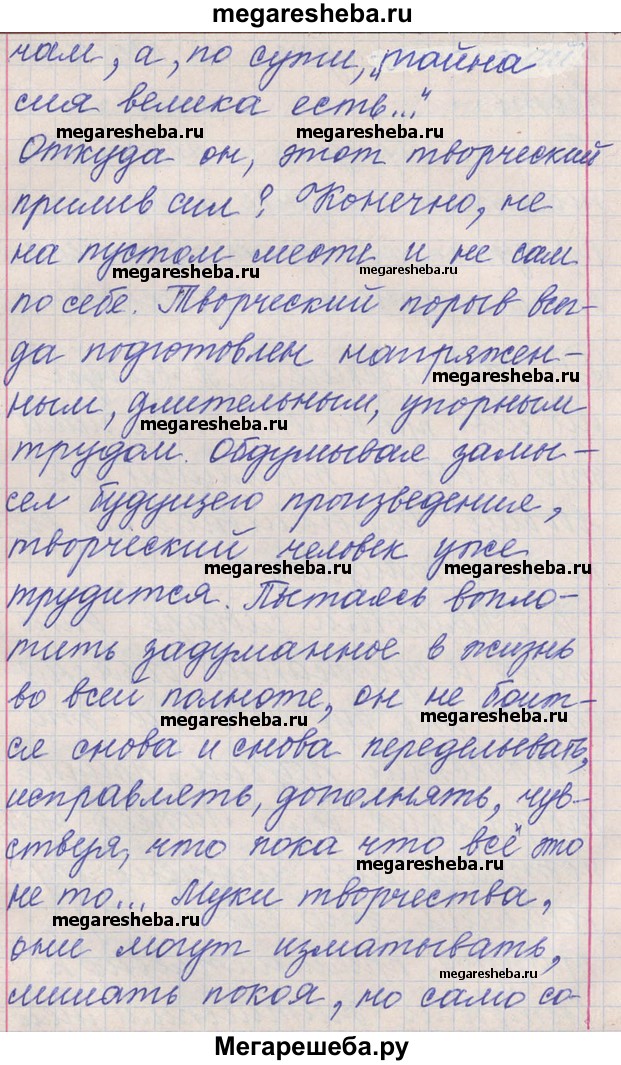 megaresheba.ru
чам, а, по сути, „тайна
сия велика есть..."
megaresheba.ru megaresheba.ru
Откуда он, этот творческий
прилив сил? Конечно, не
на пустом месте и не сам
megaresheba.ru megaresheba.ru
по себе. Творческий порыв все-
да подготовлен напряжен-
megaresheba.ru
ным, длительным, упорным
megaresheba.ru
трудом. Обдумывая замы-
сел будущего произведения,
творческий человек уже
megaresheba.ru megaresheba.ru
трудится. Пытаясь вопло-
тить задуманное в жизнь
во всей полноте, он не боит-
megaresheba.ru megaresheba.ru
ся снова и снова переделывать,
исправлять, дополнять, чув-
ствуя, что пока что всё это
megaresheba.ru
не то... Муки творчества,
megaresheba.ru
они могут изматывать,
megaresheba.ru
лишать покоя, но само со-
Мегарешеба.ру